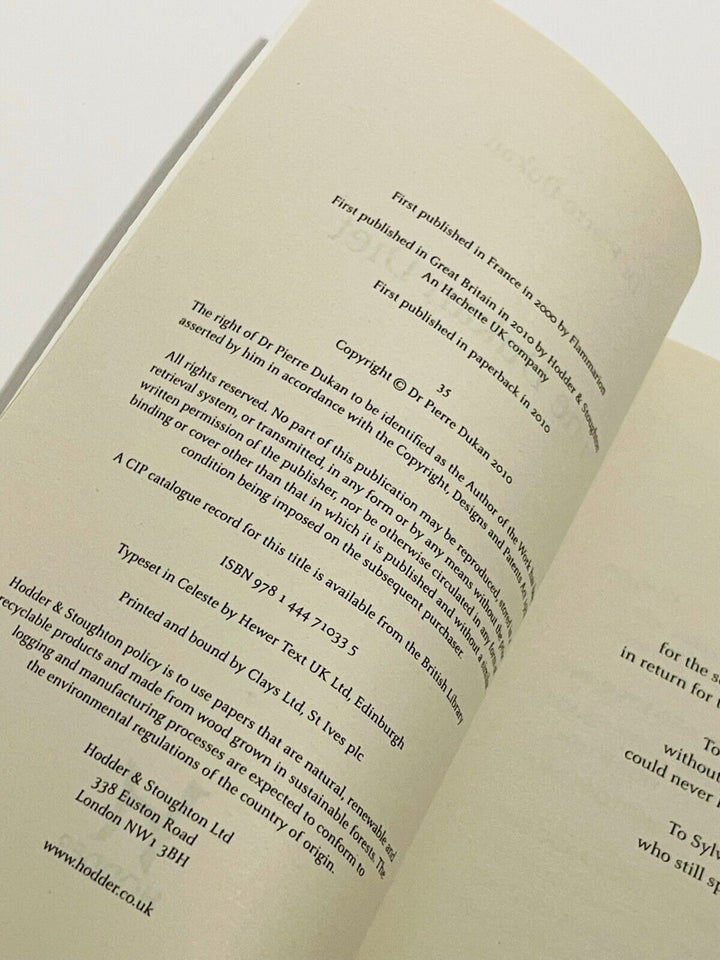 First published in France in 2000 by Flammarion
First published in Great Britain in 2010 by Hodder & Stoughton
An Hachette UK company
First published in paperback in 2010
35
Copyright © Dr Pierre Dukan 2010
The right of Dr Pierre Dukan to be identified as the Author of the Work has
asserted by him in accordance with the Copyright, Designs and Patents Act
All rights reserved. No part of this publication may be reproduced, stored
retrieval system, or transmitted, in any form or by any means without the
written permission of the publisher, nor be otherwise circulated in any form
binding or cover other than that in which it is published and without a
condition being imposed on the subsequent purchaser.
A CIP catalogue record for this title is available from the British Library
ISBN 978 1 444 71033 5
Typeset in Celeste by Hewer Text UK Ltd, Edinburgh
Printed and bound by Clays Ltd, St Ives plc
Hodder & Stoughton policy is to use papers that are natural, renewable and
recyclable products and made from wood grown in sustainable forests. The
logging and manufacturing processes are expected to conform to
the environmental regulations of the country of origin.
Hodder & Stoughton Ltd
338 Euston Road
London NW1 3BH
www.hodder.co.uk
for the
in return for
To
without
could never
To
who still